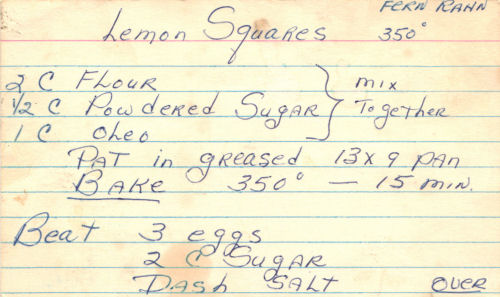 FERN RAHN
Lemon Squares 350°
2 C Flour
1/2 C Powdered Sugar
1 C Oleo
} mix
Together
PAT in greased 13x9 pan
BAKE 350° — 15 min.
Beat 3 eggs
2 C Sugar
Dash SALT
OVER